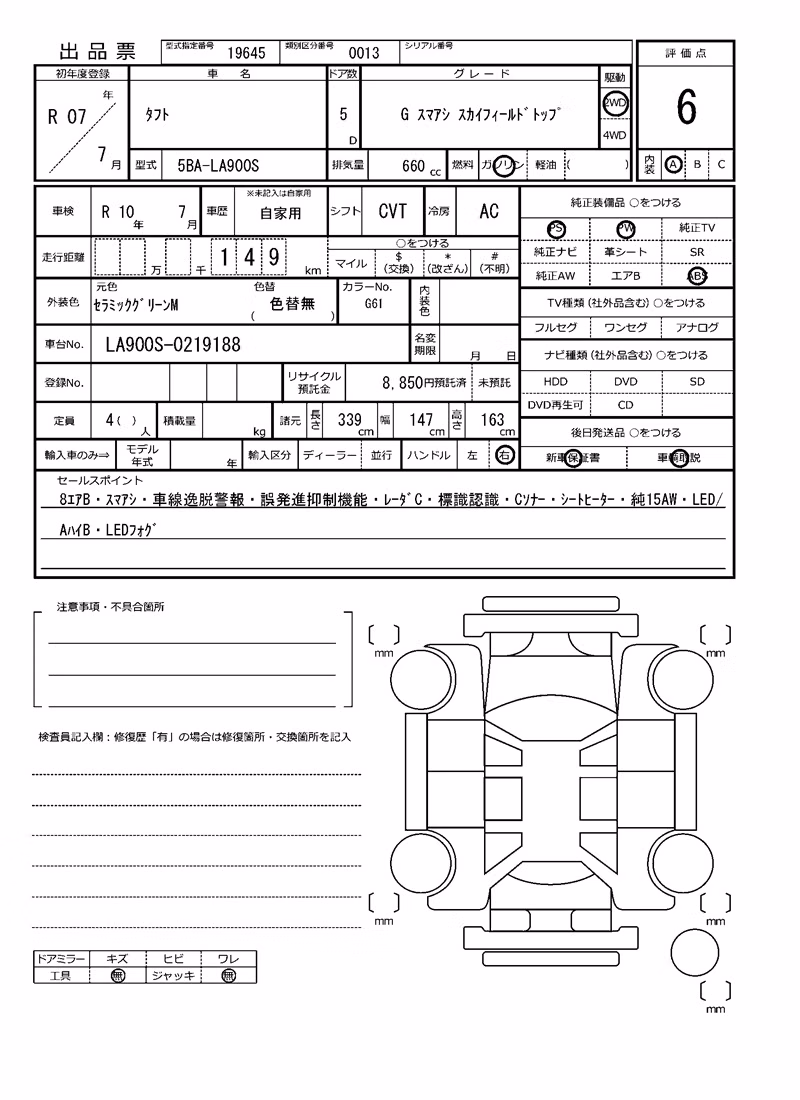 出品票 型式指定番号 19645 類別区分番号 0013 シリアル番号
評価点
6
内装 A B C
初年度登録 車名 ドア数 グレード 駆動
R 07年 7月 タフト 5D G スマアシ スカイフィールドトップ 2WD 4WD
型式 5BA-LA900S 排気量 660cc 燃料 ガソリン 軽油 ( )
車検 R 10年 7月 車歴 ※未記入は自家用 自家用 シフト CVT 冷房 AC
走行距離 万 千 149 km ○をつける マイル $(交換) *(改ざん) #(不明)
外装色 元色 セラミックグリーンM 色替 ( 色替無 ) カラーNo. G61 内装色
車台No. LA900S-0219188 名変期限 月 日
登録No. リサイクル預託金 8,850円預託済 未預託
定員 4( )人 積載量 kg 諸元 長さ 339cm 幅 147cm 高さ 163cm
輸入車のみ⇒ モデル年式 年 輸入区分 ディーラー 並行 ハンドル 左 右
純正装備品 ○をつける
PS PW 純正TV
純正ナビ 革シート SR
純正AW エアB ABS
TV種類(社外品含む)○をつける
フルセグ ワンセグ アナログ
ナビ種類(社外品含む)○をつける
HDD DVD SD
DVD再生可 CD
後日発送品 ○をつける
新車保証書 車輌取説
セールスポイント
8エアB・スマアシ・車線逸脱警報・誤発進抑制機能・レーダC・標識認識・Cソナー・シートヒーター・純15AW・LED/
AハイB・LEDフォグ
注意事項・不具合箇所
検査員記入欄:修復歴「有」の場合は修復箇所・交換箇所を記入
〔 〕mm 〔 〕mm
〔 〕mm 〔 〕mm
〔 〕mm
ドアミラー キズ ヒビ ワレ
工具 無 ジャッキ 無